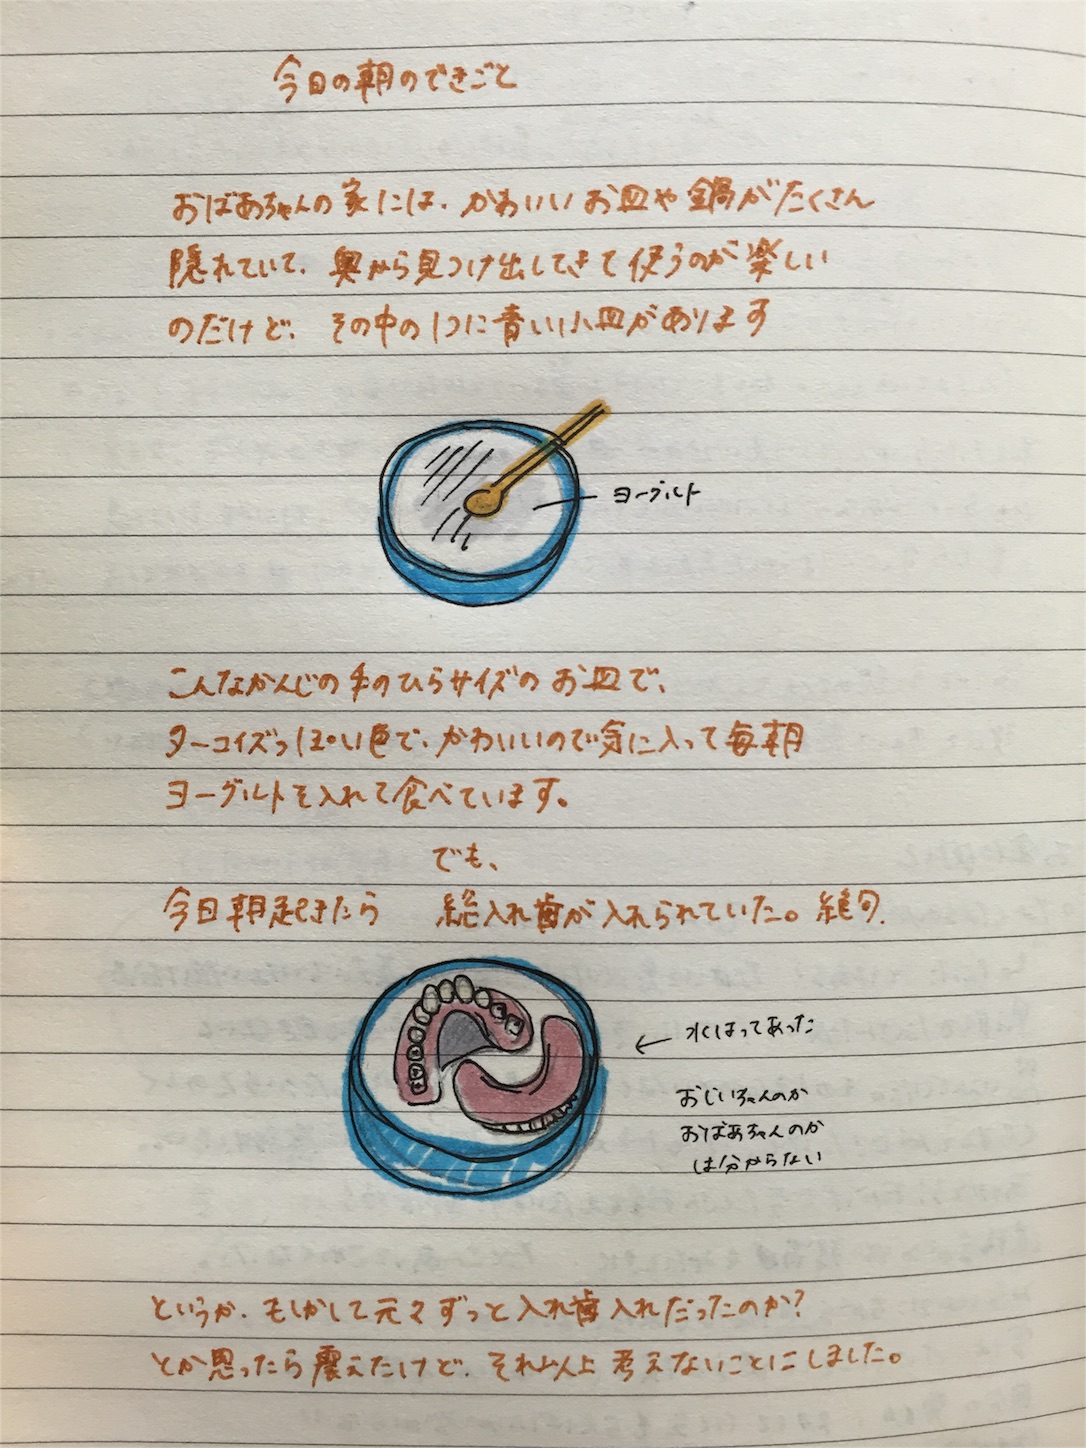 今日の朝のできごと
おばあちゃんの家には、かわいいお皿や鍋がたくさん
隠れていて、奥から見つけ出してきて使うのが楽しい
のだけど、その中の1つに青い小皿があります
ヨーグルト
こんなかんじの手のひらサイズのお皿で、
ターコイズっぽい色で、かわいいので気に入って毎朝
ヨーグルトを入れて食べています。
でも、
今日朝起きたら 総入れ歯が入れられていた。絶句.
← 水はってあった
おじいちゃんのか
おばあちゃんのか
は分からない
というか、もしかして元々ずっと入れ歯入れだったのか?
とか思ったら震えたけど、それ以上考えないことにしました。